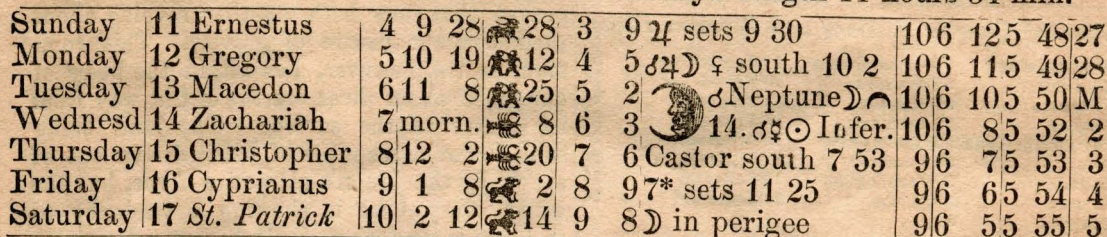 Sunday 11 Ernestus 4 9 28 28 3 9 ♃ sets 9 30 10 6 12 5 48 27
Monday 12 Gregory 5 10 19 12 4 5 ☌♃☽ ♀ south 10 2 10 6 11 5 49 28
Tuesday 13 Macedon 6 11 8 25 5 2 ☌Neptune☽ 10 6 10 5 50 M
Wednesd 14 Zachariah 7 morn. 8 6 3 14. ☌☿☉ Infer. 10 6 8 5 52 2
Thursday 15 Christopher 8 12 2 20 7 6 Castor south 7 53 9 6 7 5 53 3
Friday 16 Cyprianus 9 1 8 2 8 9 7* sets 11 25 9 6 6 5 54 4
Saturday 17 St. Patrick 10 2 12 14 9 8 ☽ in perigee 9 6 5 5 55 5